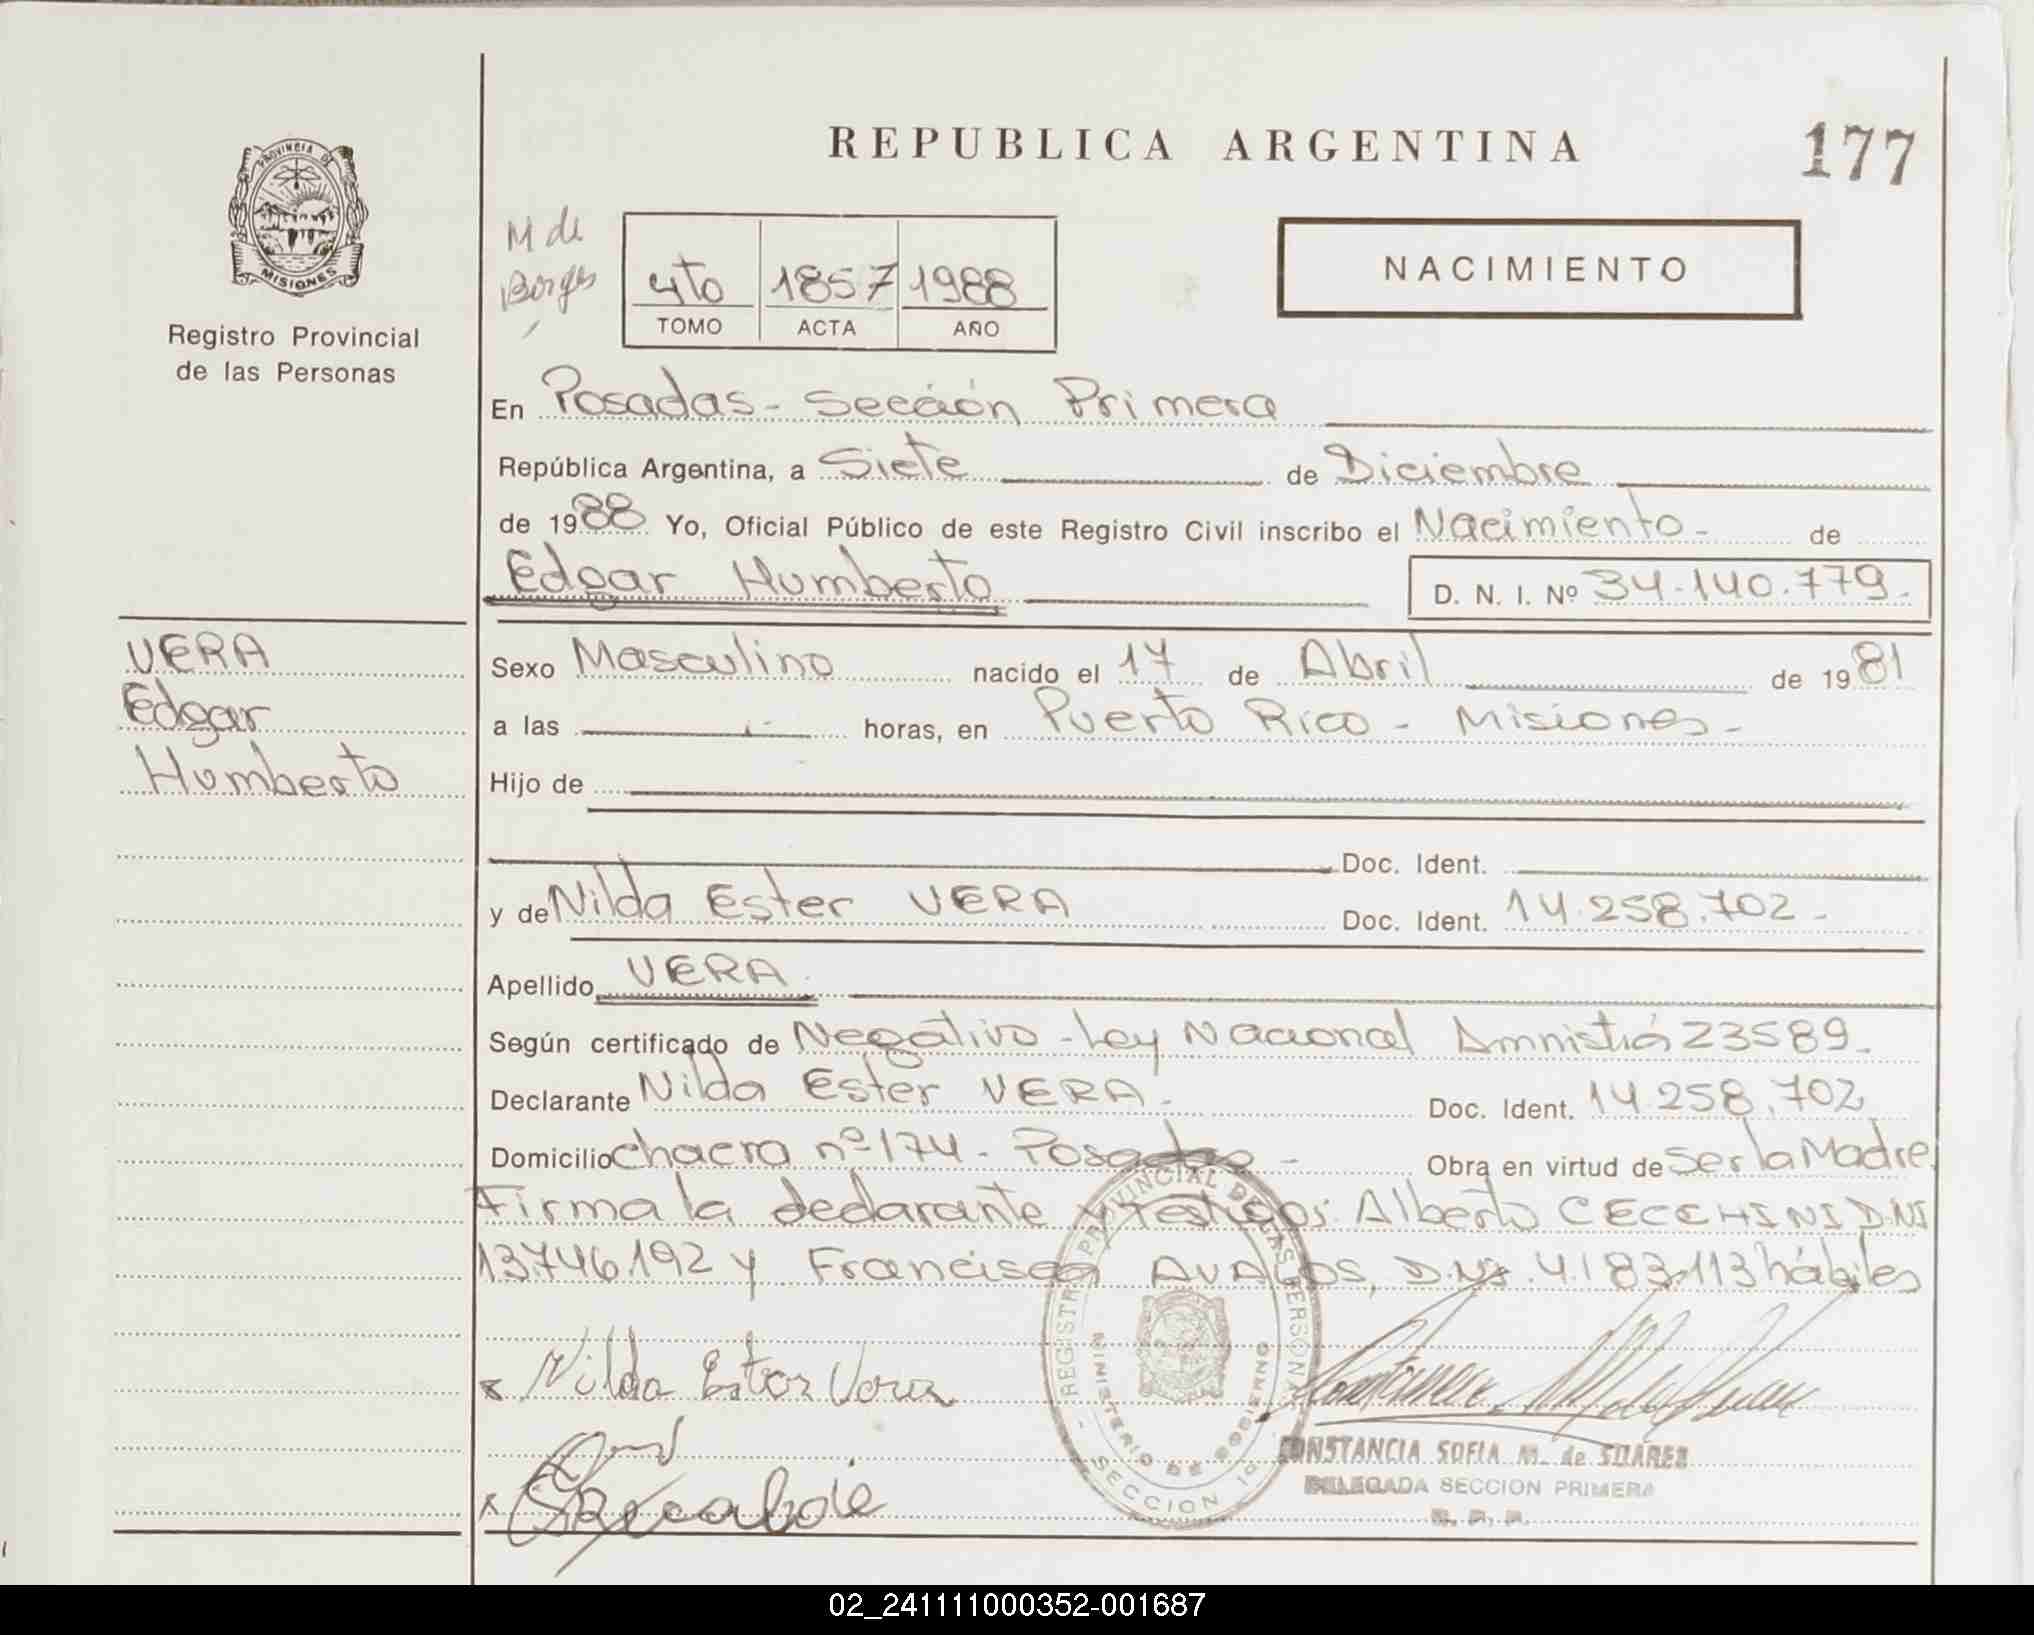 REPUBLICA ARGENTINA
177
PROVINCIA DE
MISIONES
Registro Provincial
de las Personas
M de
Borges
4to 1857 1988
TOMO ACTA AÑO
NACIMIENTO
En Posadas - Sección Primera
República Argentina, a Siete de Diciembre
de 1988 Yo, Oficial Público de este Registro Civil inscribo el Nacimiento - de
Edgar Humberto D. N. I. Nº 34.140.779.-
VERA
Edgar
Humberto
Sexo Masculino nacido el 17 de Abril de 1981
a las horas, en Puerto Rico - Misiones -
Hijo de
Doc. Ident.
y de Nilda Ester VERA Doc. Ident. 14.258.702 -
Apellido VERA
Según certificado de Negativo - Ley Nacional Amnistía 23589 -
Declarante Nilda Ester VERA - Doc. Ident. 14.258.702
Domicilio chacra nº 174 - Posadas - Obra en virtud de Ser la Madre
Firma la declarante y testigos: Alberto CECCHINI DNI
13.746.192 y Francisca AVALOS, DNI. 4.183.113 hábiles
Nilda Ester Vera
REGISTRO PROVINCIAL DE LAS PERSONAS
MINISTERIO DE GOBIERNO
- SECCION 1ª -
CONSTANCIA SOFIA M. de SUAREZ
DELEGADA SECCION PRIMERA
R. P. P.
02_241111000352-001687